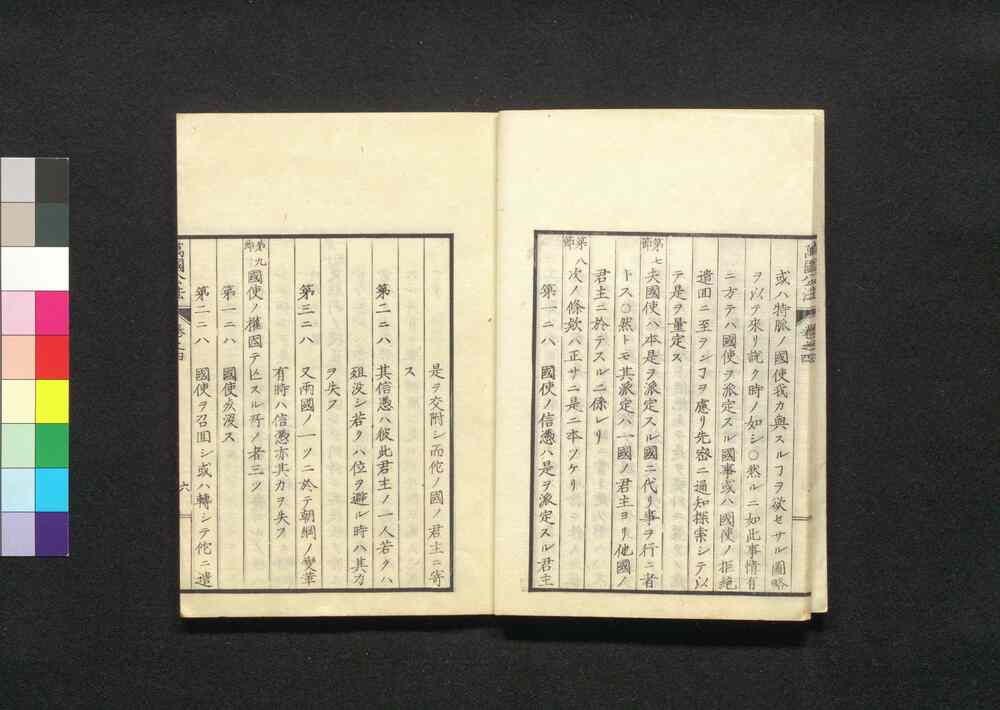 或ハ特脈ノ國使我カ與スルヿヲ欲セサル圖略
ヲ以テ來リ說ク時ノ如シ〇然ルニ如此事情有
ニ方テハ國使ヲ派定スル國事或ハ國使ノ拒絶
遣回ニ至ランヿヲ慮リ先密ニ通知探索シテ以
テ是ヲ量定ス
第七節 夫國使ハ本是ヲ派定スル國ニ代リ事ヲ行ニ者
トス〇然トモ其派定ハ一國ノ君主ヨリ他國ノ
君主ニ於テスルニ係レリ
第八節 次ノ條欵ハ正サニ是ニ本ツケリ
第一ニハ 國使ノ信憑ハ是ヲ派定スル君主
萬國公法 卷之四
是ヲ交附シ而佗ノ國ノ君主ニ寄
ス
第二ニハ 其信憑ハ彼此君主ノ一人若クハ
殂没シ若クハ位ヲ避ル時ハ其力
ヲ失フ
第三ニハ 又兩國ノ一ツニ於テ朝綱ノ變革
有時ハ信憑亦其力ヲ失フ
第九節 國使ノ權因テ亡スル所ノ者三ツ
第一ニハ 國使死没ス
第二ニハ 國使ヲ召回シ或ハ轉シテ佗ニ遣
萬國公法 卷之四 六